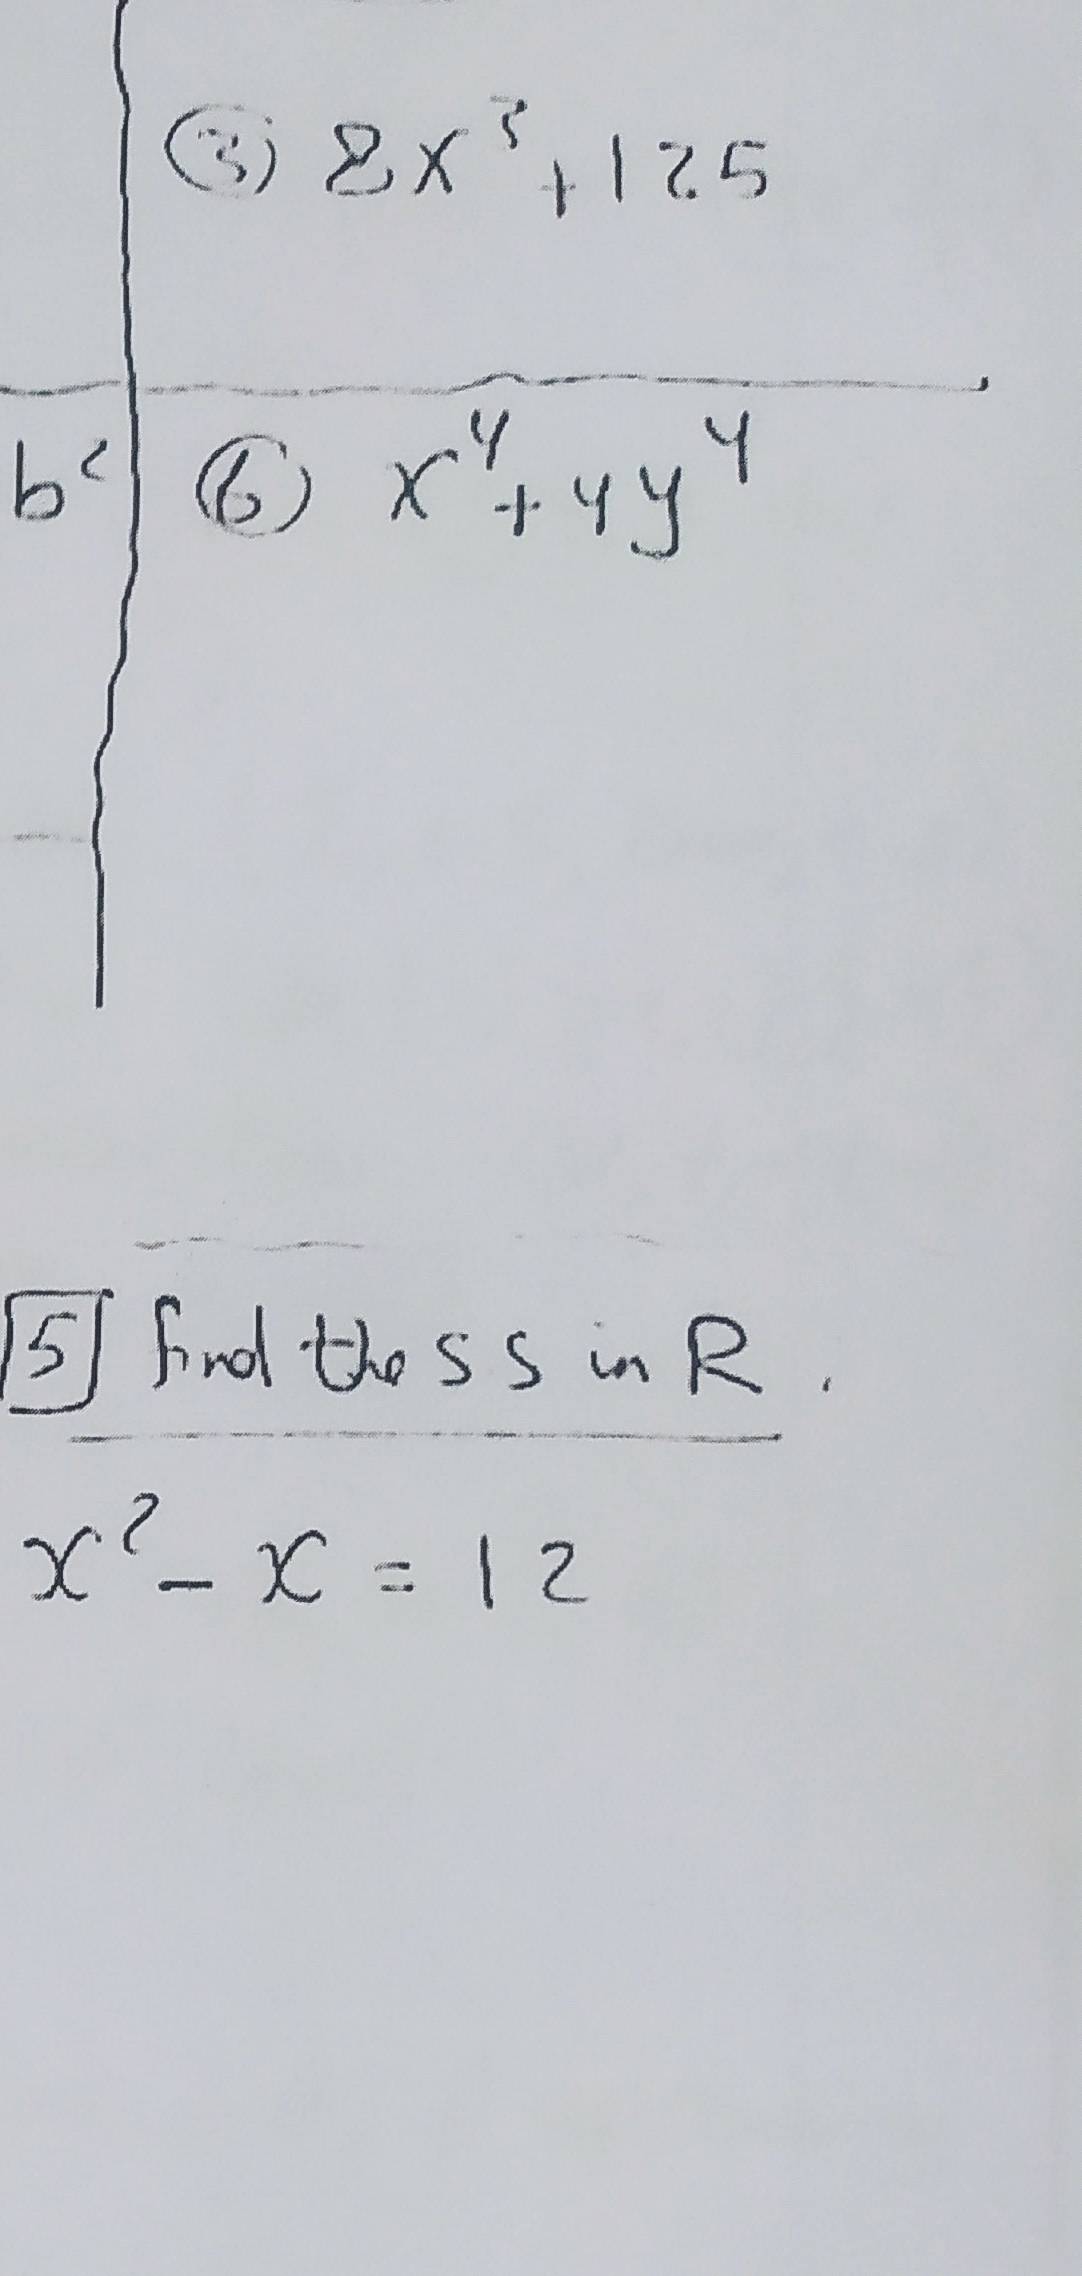 ③ 8x³+125
b²
⑥ x⁴+4y⁴
5 find the s s in R.
x² - x = 12